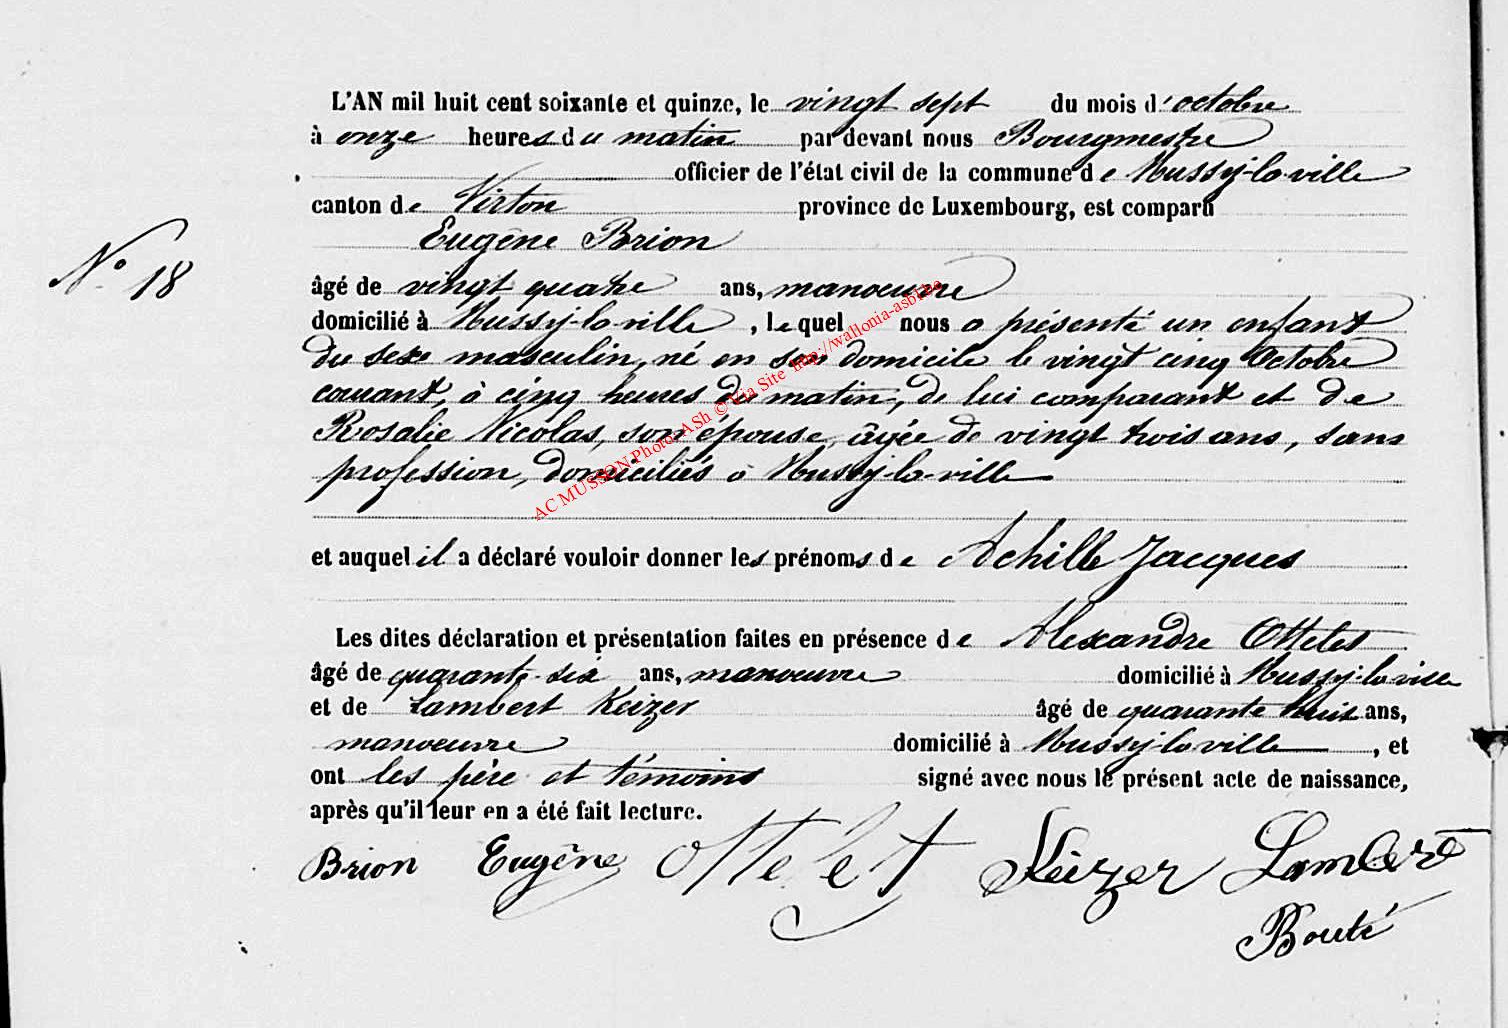 L'AN mil huit cent soixante et quinze, le vingt sept du mois d'octobre
à onze heures du matin par devant nous Bourgmestre
officier de l'état civil de la commune de Mussy-la-ville
canton de Virton province de Luxembourg, est comparu
Eugène Brion
N° 18
âgé de vingt quatre ans, manoeuvre
domicilié à Mussy-la-ville, lequel nous a présenté un enfant
du sexe masculin, né en son domicile le vingt cinq Octobre
courant, à cinq heures du matin, de lui comparant et de
Rosalie Nicolas, son épouse, âgée de vingt trois ans, sans
profession, domiciliés à Mussy-la-ville
AC MUSSON Photo - ASh © Via Site http://wallonia-asbl.be
et auquel il a déclaré vouloir donner les prénoms de Achille Jacques
Les dites déclaration et présentation faites en présence de Alexandre Ottelet
âgé de quarante-six ans, manoeuvre domicilié à Mussy-la-ville
et de Lambert Keizer âgé de quarante huit ans,
manoeuvre domicilié à Mussy-la-ville, et
ont les père et témoins signé avec nous le présent acte de naissance,
après qu'il leur en a été fait lecture.
Brion Eugène Ottelet Keizer Lambert
Bouté